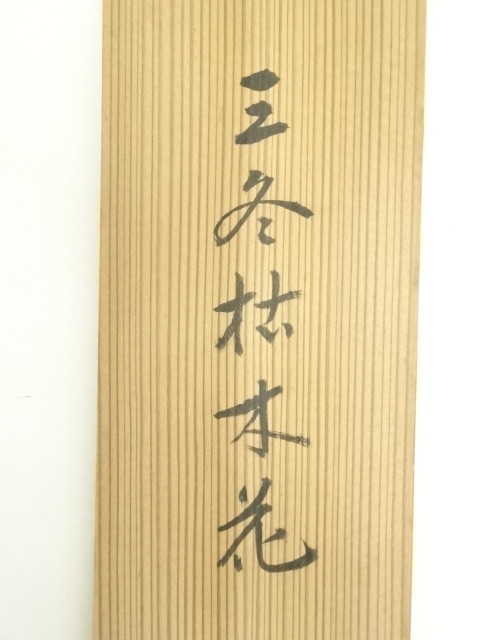 三冬枯木花